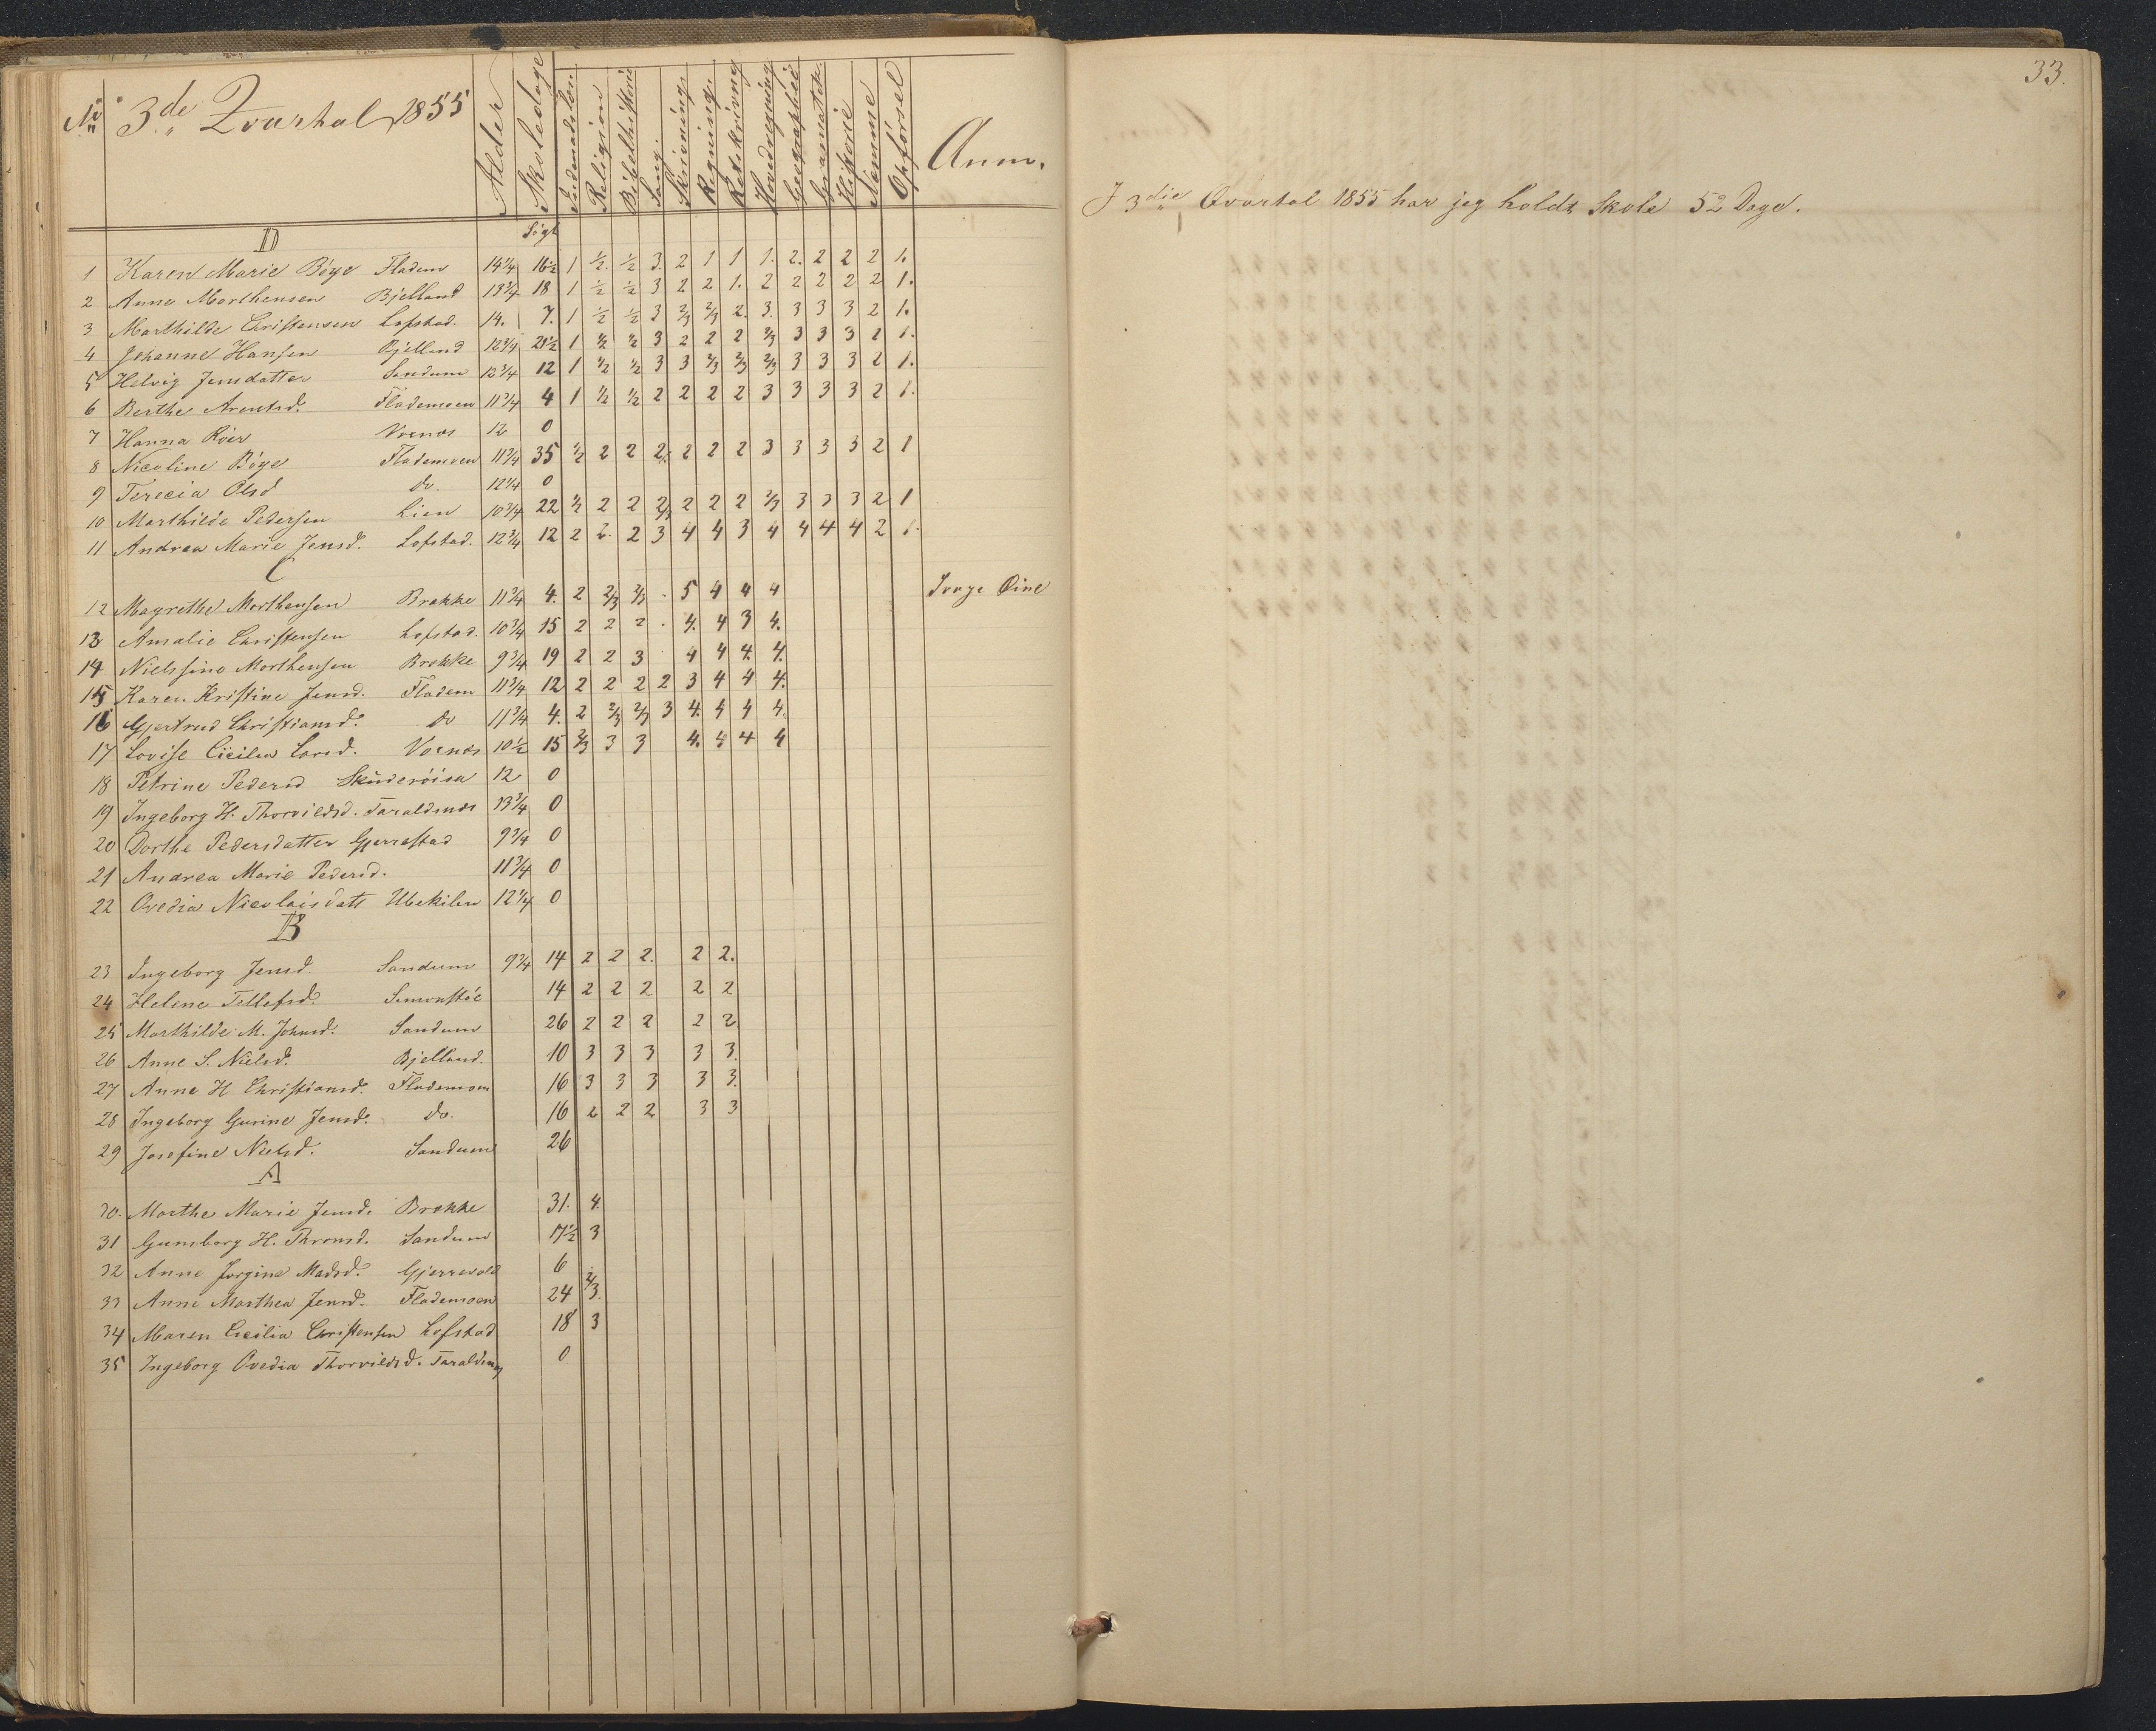 No 3de Qvartal 1855 Alder Skoledage Indenadslæsn. Religion Bibelhistorie Sang. Skrivning. Regning. Retskrivning Hovedregning Geographie Gramatik. Historie Nemme Opførsel Anm.
Søgt
D
1 Karen Marie Bøye Fladem 14 1/4 16 1/2 1 1/2. 1/2 3. 2 1 1 1. 2. 2 2 2 1.
2 Anne Morthensen Bjelland 13 3/4 18 1 1/2 1/2 3 2 2 1. 2 2 2 2 2 1.
3 Marthilde Christensen Lofstad. 14. 7. 1 1/2 1/2 3 2/3 2/3 2. 3. 3 3 3 2 1.
4 Johanne Hansen Bjelland 12 3/4 21 1/2 1 1/2 1/2 3 2 2 2 2/3 3 3 3 2 1.
5 Helvig Jensdatter Sandum 12 3/4 12 1 1/2 1/2 3 3 2/3 2/3 2/3 3 3 3 2 1.
6 Berthe Arentsd. Flademoen 11 3/4 4 1 1/2 1/2 2 2 2 2 3 3 3 3 2 1.
7 Hanna Röer Voenes 12 0
8 Nicoline Bøye Flademoen 11 3/4 35 1/2 2 2 2. 2 2 2 3 3 3 3 2 1
9 Terecia Olsd do. 12 1/4 0
10 Marthilde Pedersen Lien 10 3/4 22 1/2 2 2 2/3 2 2 2 2/3 3 3 3 2 1
11 Andrea Marie Jensd. Lofstad. 12 3/4 12 2 2. 2 3 4 4 3 4 4 4 4 2 1.
C
12 Magrethe Morthensen Brække 11 3/4 4. 2 2/3 2/3 . 5 4 4 4 Svage Øine
13 Amalie Christensen Lofstad. 10 3/4 15 2 2 2 . 4. 4 3 4.
14 Nielsine Morthensen Brække 9 3/4 19 2 2 3 4 4 4. 4.
15 Karen Kristine Jensd. Fladem 11 3/4 12 2 2 2 2 3 4 4 4.
16 Gjertrud Christiansd. do 11 3/4 4. 2 2/3 2/3 3 4. 4 4 4.
17 Lovise Cicilia Larsd. Voenes 10 1/2 15 2/3 3 3 4. 4 4 4
18 Petrine Pedersd Skuderöisa 12 0
19 Ingeborg H. Thorvildsd. Taraldsnæs 13 3/4 0
20 Dorthe Pedersdatter Gjerrestad 9 3/4 0
21 Andrea Marie Pedersd. 11 3/4 0
22 Ovedia Nicolaisdatt Ubekilen 12 1/4 0
B
23 Ingeborg Jensd. Sandum 9 3/4 14 2 2 2. 2 2.
24 Helene Tellefsd. Simonstöe 14 2 2 2 2 2
25 Marthilde M. Johnsd. Sandum 26 2 2 2 2 2
26 Anne S. Nielsd. Bjelland. 10 3 3 3 3 3.
27 Anne H Christiansd. Flademoen 16 3 3 3 3 3.
28 Ingeborg Gurine Jensd. do. 16 2 2 2 3 3
29 Josefine Nielsd. Sandum 26
A
30. Marthe Marie Jensd. Brække 31. 4.
31 Gunborg H. Thronsd. Sandum 17 1/2 3
32 Anne Jorgine Madsd. Gjerrevold 6
33 Anne Marthea Jensd. Flademoen 24 2/3.
34 Maren Cicilia Christensen Lofstad 18 3
35 Ingeborg Ovedia Thorvildsd. Taraldsnæs 0
33.
I 3die Qvartal 1855 har jeg holdt Skole 52 Dage.